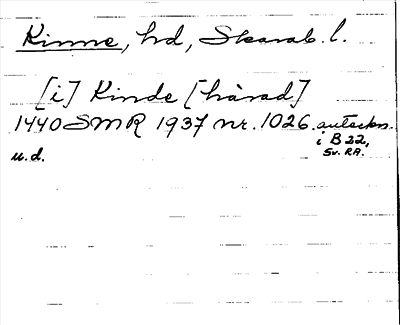 Kinne, hd, Skarab. l.
[i] Kinde [härad]
1440 SMR 1937 nr. 1026. anteckn.
i B 22,
Sv. RA.
u.d.